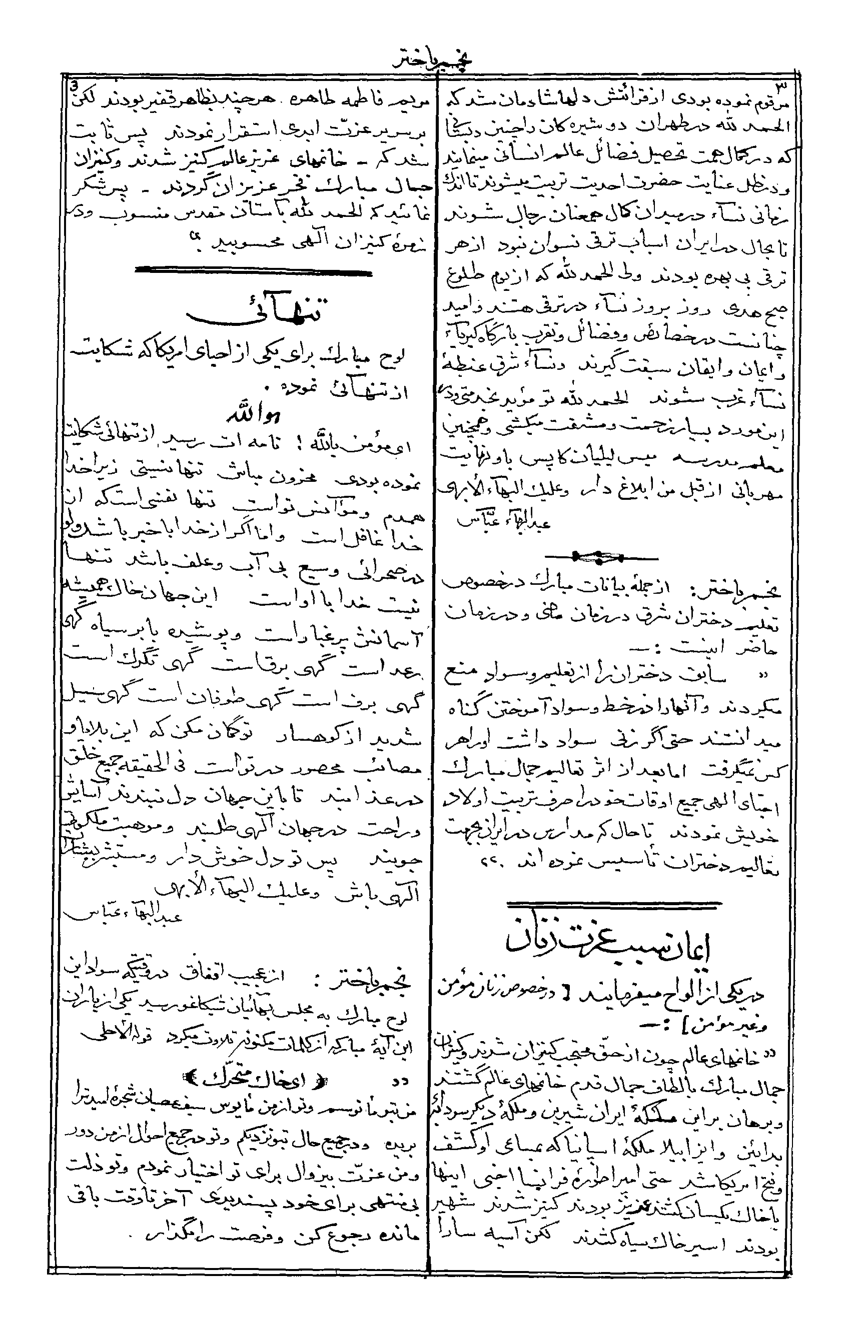 نجم باختر
۳
مرقوم نموده بودی از قرائتش دلها شادمان شد که
الحمد لله در طهران دوشیزه‌کان راچنین دبستانی
که در کمال همت تحصیل فضائل عالم انسانی مینمایند
و در ظل عنایت حضرت احدیت تربیت میشوند تا اندک
زمانی نسآء در میدان کمال همعنان رجال شوند
تابحال در ایران اسباب ترقی نسوان نبود از هر
ترقی بی بهره بودند ولی الحمد لله که از یوم طلوع
صبح هدی روز بروز نسآء در ترقی هستند و امید
چنانست در خصائص و فضائل و تقرب بارگاه کبریآء
و ایمان و ایقان سبقت گیرند و نسآء شرق غبطهٔ
نسآء غرب شوند الحمد لله تو مؤید بخدمتی و در
این مورد بسیار زحمت و مشقت میکشی و همچنین
معلم مدرسه میس لیلیان کاپس باو نهایت
مهربانی از قبل من ابلاغ دار وعلیک البهآء الأبهی
عبدالبهآء عباس
نجم باختر: از جملهٔ بیانات مبارک در خصوص
تعلیم دختران شرق در زمان ماضی و در زمان
حاضر اینست :—
" سابق دختران را از تعلیم و سواد منع
میکردند و آنها را در خط و سواد آموختن گناه
میدانستند حتی اگر زنی سواد داشت اورا هر
کس نمیگرفت اما بعد از اثر تعالیم جمال مبارک
احبای الهی جمیع اوقات خود را صرف تربیت اولاد
خویش نمودند تا حال که مدارس در ایران بجهت
تعالیم دختران تأسیس نموده اند "
ایمان سبب عزت زنان
در یکی از الواح میفرمایند [ در خصوص زنان مؤمن
و غیر مؤمن ] :—
" خانمهای عالم چون از حق محتجب کنیزان شدند و کنیزان
جمال مبارک بالطاف جمال قدم خانمهای عالم گشتند
و برهان براین ملکهٔ ایران شیرین و ملکهٔ دیگر سودابهٔ
مداین و ایزابیلا ملکهٔ اسپانیا که بمساعی او کشف
و فتح امریکا شد حتی امپراطورهٔ فرانسا اخی اینها
با خاک یکسان گشتند عزیز بودند کنیز شدند شهیر
بودند اسیر خاک سیاه گشتند لکن آسیه سارا
3
مریم فاطمه طاهره هرچند بظاهر فقیر بودند لکن
بر سریر عزت ابدی استقرار نمودند پس ثابت
شد که - خانمهای عزیز عالم کنیز شدند و کنیزان
جمال مبارک فخر عزیزان گردند - پس شکر
نمائید که الحمد لله بآستان مقدس منسوب و در
زمرهٔ کنیزان الهی محسوبید "
تنهائی
لوح مبارک برای یکی از احبای امریکا که شکایت
از تنهائی نموده .
هوالله
ای مؤمن بالله ! نامه ات رسید از تنهائی شکایت
نموده بودی محزون مباش تنها نیستی زیرا خدا
همدم و مؤانس تواست تنها نفسی است که از
خدا غافل است و اما اگر از خدا با خبر باشد ولو
در صحرائی وسیع بی آب و علف باشد تنها
نیست خدا با اواست این جهان خاک همیشه
آسمانش پرغبار است و پوشیده بابر سیاه گهی
رعد است گهی برق است گهی تگرک است
گهی برف است گهی طوفان است گهی سیل
شدید از کوهسار تو گمان مکن که این بلایا و
مصائب محصور در تواست فی الحقیقه جمیع خلق
در عذابند تا باین جهان دل نبندند آسایش
و راحت در جهان الهی طلبند و موهبت ملکوتی
جویند پس تو دل خوش دار و مستبشر ببشارات
الهی باش وعلیک البهآء الأبهی
عبدالبهآء عباس
نجم باختر : از عجیب اتفاق در وقتیکه سواد این
لوح مبارک به مجلس بهائیان شکاغو رسید یکی از یاران
این آیهٔ مبارکه از کلمات مکنونه تلاوت میکرد قوله الأحلی
" ﴿ ای خاک متحرک ﴾
من بتو مأنوسم و تو از من مأیوس سیف عصیان شجرهٔ امید ترا
بریده و در جمیع حال بتو نزدیکم و تو در جمیع احوال از من دور
و من عزت بیزوال برای تو اختیار نمودم و تو ذلت
بی منتهی برای خود پسندیدی آخر تا وقت باقی
مانده رجوع کن و فرصت را مگذار .